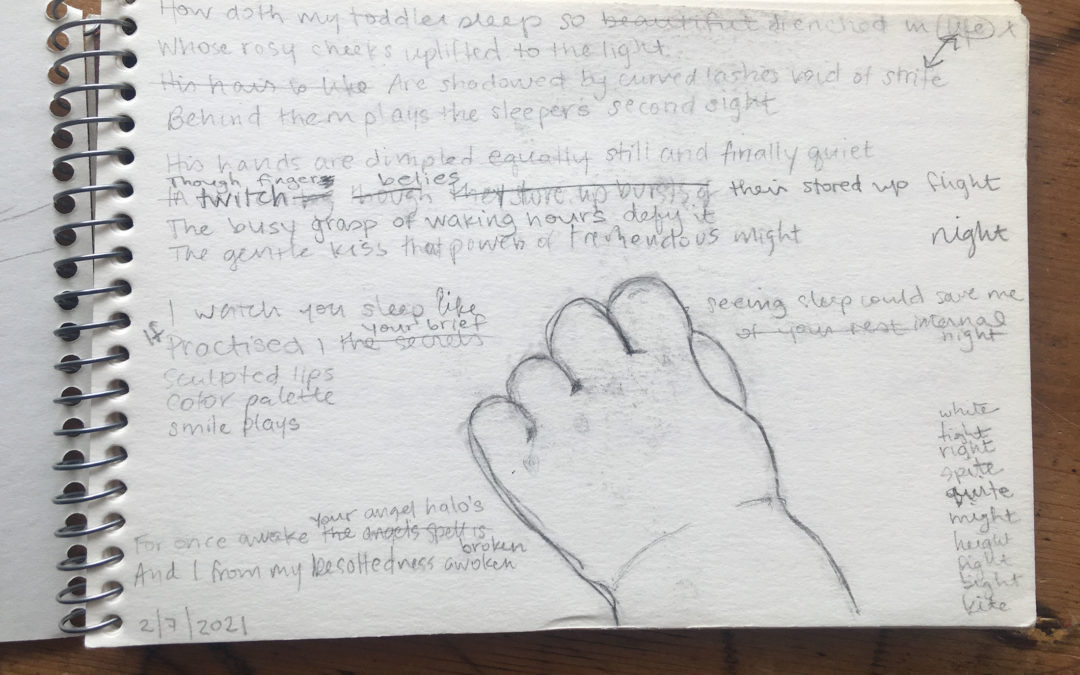 How doth my toddler sleep so beautiful drenched in (life) x
Whose rosy cheeks uplifted to the light
His hair is like Are shadowed by curved lashes void of strife
Behind them plays the sleepers' second sight
His hands are dimpled equally still and finally quiet
Though fingers belies
twitch though They store up bursts of their stored up flight
The busy grasp of waking hours defy it
The gentle kiss that power of tremendous might night
I watch you sleep like seeing sleep could save me
your brief of your rest internal
If Practised I the secrets night
Sculpted lips
Color palette
smile plays
white
tight
right
spite
quite
might
height
light
bight
kite
your angel halo's
For once awake the angels spell is
broken
And I from my besottedness awoken
2/7/2021